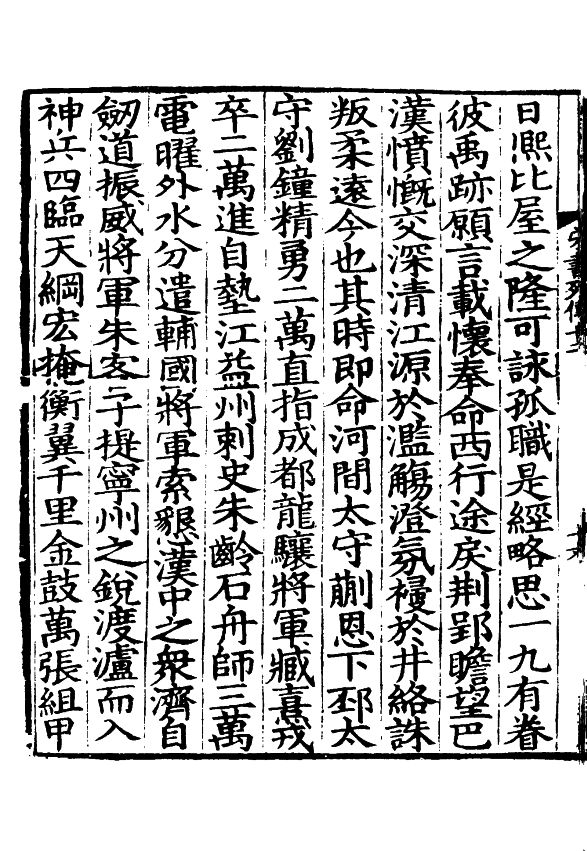 日熈比屋之隆可詠孤職是經略思一九有眷
彼禹跡願言載懷奉命西行途戾荆郢瞻望巴
漢憤慨交深清江源於濫觴澄氛祲於井絡誅
叛柔遠今也其時即命河間太守蒯恩下邳太
守劉鐘精勇二萬直指成都龍驤將軍臧熹戎
卒二萬進自墊江益州刺史朱齡石舟師三萬
電曜外水分遣輔國將軍索懇漢中之衆濟自
劒道振威將軍朱客子提寧州之銳渡瀘而入
神兵四臨天綱宏掩衡翼千里金鼓萬張組甲